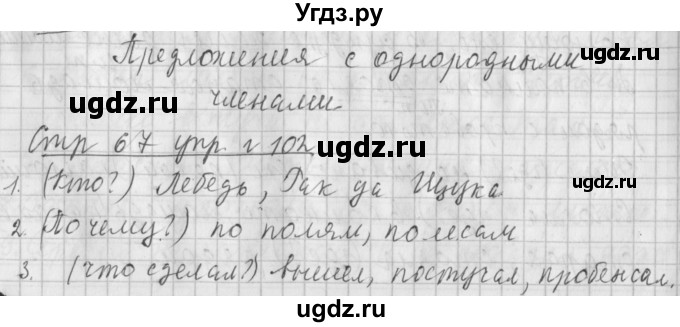 Угдз.ру
Предложения с однородными
членами
Стр 67 упр. г 102
1. (Кто?) Лебедь, Рак да Щука
2. (По чему?) по полям, по лесам
3. (что сделал?) вышел, постучал, пробежал.
ugdz.ru ugdz.ru
ugdz.ru ugdz.ru
ugdz.ru ugdz.ru
ugdz.ru